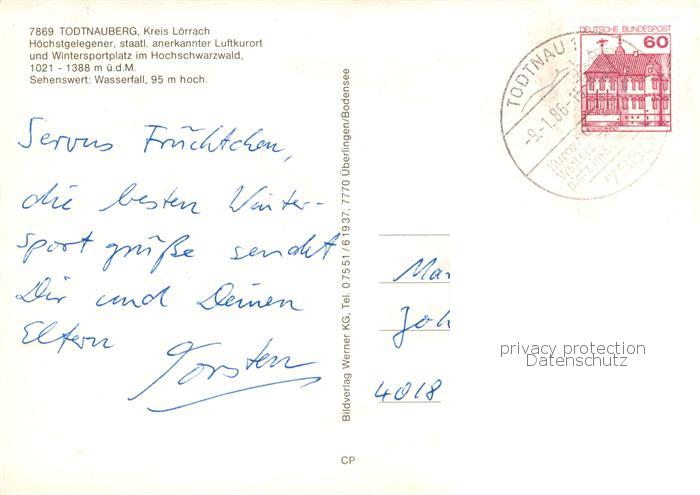 7869 TODTNAUBERG, Kreis Lörrach
Höchstgelegener, staatl. anerkannter Luftkurort
und Wintersportplatz im Hochschwarzwald,
1021 - 1388 m ü.d.M.
Sehenswert: Wasserfall, 95 m hoch.
Servus Früchtchen,
die besten Winter-
sport grüße sendet
Dir und Deinen
Eltern
Torsten
Bildverlag Werner KG, Tel. 07551/61937, 7770 Überlingen/Bodensee
CP
DEUTSCHE BUNDESPOST
60
TODTNAU 1
-9.-1.86-15
7868
Mar
Joh
4018
privacy protection
Datenschutz